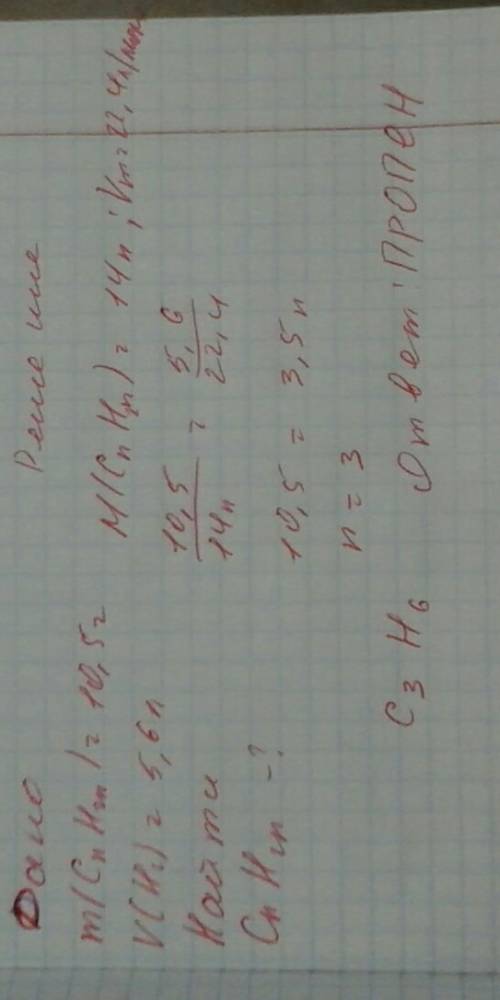 Дано
m(CnH2n) = 10,5г
V(H2) = 5,6л
Найти
CnH2n -?
Решение
M(CnH2n) = 14n; Vm = 22,4л/моль
10,5/14n = 5,6/22,4
10,5 = 3,5n
n = 3
C3H6 Ответ: ПРОПЕН